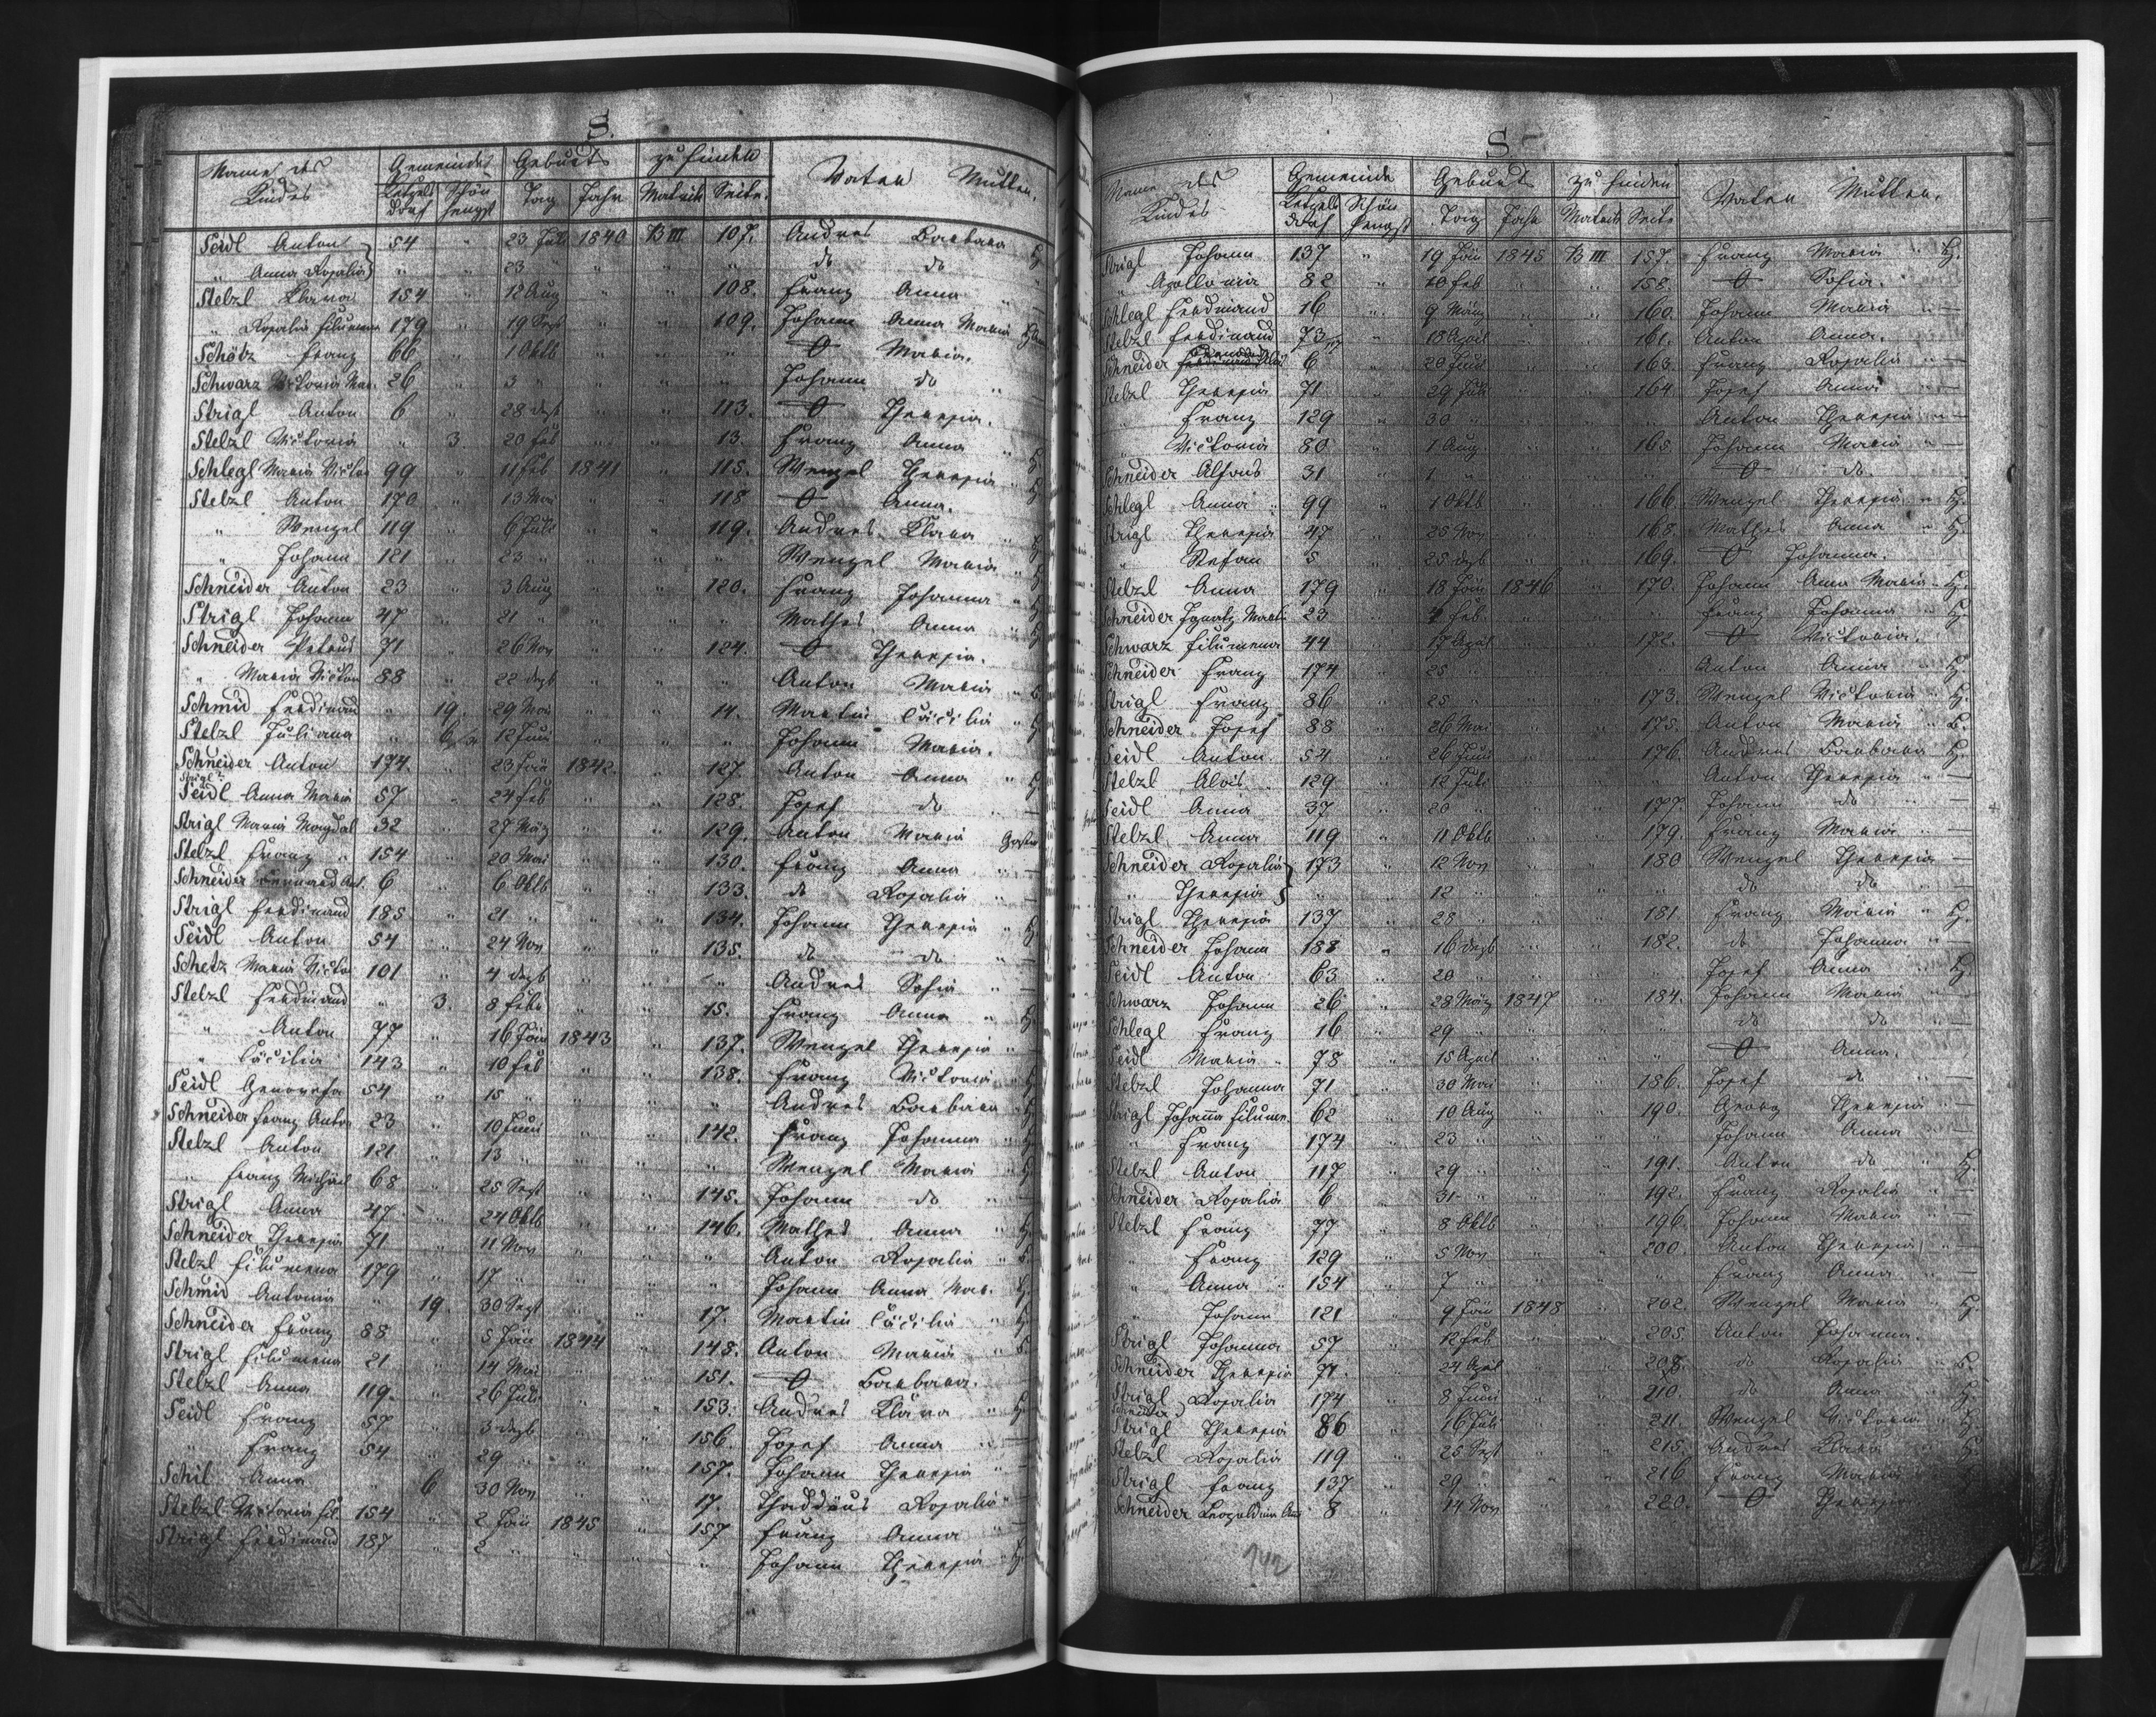 S.
Name des Kindes Gemeinde Geburts zu finden Vater Mutter.
Ketzelsdorf Schönhengst Tag Jahr Matrik Seite.
Seidl Anton 54 " 23 Juli 1840 B III 107. Andreas Barbara
" Anna Rosalia " " 23 " " " " do do
Stelzl Klara 154 " 12 Aug " " 108. Franz Anna "
" Rosalia Filumena 179 " 19 Sept " " 109. Johann Anna Maria
Schötz Franz 66 " 1 Oktb " " " O Maria.
Schwarz Viktoria Mar. 26 " 3 " " " " Johann do "
Strigl Anton 6 " 28 dezb " " 113. O Theresia.
Stelzl Victoria " 3. 20 Feb " " 13. Franz Anna "
Schlegl Maria Victor 99 " 11 Feb 1841 " 115. Wenzel Theresia "
Stelzl Anton 170 " 13 Mai " " 118 O Anna.
" Wenzel 119 " 6 Juli " " 119. Andreas Klara "
" Johann 121 " 23 " " " " Wenzel Maria "
Schneider Anton 23 " 3 Aug " " 120. Franz Johanna "
Strigl Johann 47 " 21 " " " " Mathes Anna "
Schneider Petrus 71 " 26 Nov " " 124. O Theresia.
" Maria Victor 88 " 22 dezb " " " Anton Maria "
Schmid Ferdinand " 19. 29 Mai " " 14. Martin Cäcilia "
Stelzl Juliana " 6 12 Juni " " " Johann Maria.
Schneider Anton 174. " 23 Jän 1842. " 127. Anton Anna "
Strigl
Seidl Anna Maria 57 " 24 Feb " " 128. Josef do "
Strigl Maria Magdal 32 " 27 März " " 129. Anton Maria
Stelzl Franz 154 " 20 Mai " " 130. Franz Anna "
Schneider Bernard Ant. 6 " 6 Oktb " " 133. do Rosalia "
Strigl Ferdinand 185 " 21 " " " 134. Johann Theresia "
Seidl Anton 54 " 24 Nov " " 135. do do "
Schetz Maria Victor 101 " 4 dezb " " " Andreas Sofia "
Stelzl Ferdinand " 3. 8 Febr " " 15. Franz Anna "
" Anton 77 " 16 Jän 1843 " 137. Wenzel Theresia "
" Cäcilia 143 " 10 Feb " " 138. Franz Victoria "
Seidl Genovefa 54 " 15 " " " " Andreas Barbara "
Schneider Franz Anton 23 " 10 Juni " " 142. Franz Johanna "
Stelzl Anton 121 " 13 " " " " Wenzel Maria "
" Franz Michael 68 " 25 Sept " " 145. Johann do "
Strigl Anna 47 " 24 Oktb " " 146. Mathes Anna "
Schneider Theresia 71 " 11 Nov " " " Anton Rosalia "
Stelzl Filumena 179 " 17 " " " " Johann Anna Mar.
Schmid Antonia " 19. 30 Sept " " 17. Martin Cäcilia "
Schneider Franz 88 " 5 Jän 1844 " 148. Anton Maria "
Strigl Filumena 21 " 14 Mai " " 151. O Barbara.
Stelzl Anna 119. " 26 Juli " " 153. Andreas Klara "
Seidl Franz 57 " 3 dezb " " 156. Josef Anna "
" Franz 54 " 29 " " " 157. Johann Theresia "
Schil Anna " 6 30 Nov " " 17. Thaddäus Rosalia "
Stelzl Victoria Fil. 154 " 2 Jän 1845 " 157 Franz Anna "
Strigl Ferdinand 187 " 2 " " " " Johann Theresia "
S.
Name des Kindes Gemeinde Geburts zu finden Vater Mutter.
Ketzelsdorf Schönhengst Tag Jahr Matrik Seite
Strigl Johann 137 " 19 Jän 1845 B III 157. Franz Maria "
" Apollonia 82 " 10 Feb " " 158. O Sofia.
Schlegl Ferdinand 16 " 9 März " " 160. Johann Maria "
Stelzl Ferdinand 73 " 18 April " " 161. Anton Anna.
Schneider 6 " 20 Juni " " 163. Franz Rosalia "
Stelzl Theresia 71 " 29 Juli " " 164. Josef Anna "
" Franz 129 " 30 " " " " Anton Theresia "
" Victoria 80 " 1 Aug " " 165. Johann Maria "
Schneider Alfons 31 " 1 " " " " O do.
Schlegl Anna 99 " 1 Oktb " " 166. Wenzel Theresia "
Strigl Theresia 47 " 25 Nov " " 168. Mathes Anna "
" Stefan 5 " 25 dezb " " 169. O Johanna.
Stelzl Anna 179 " 18 Jän 1846 " 170. Johann Anna Maria "
Schneider Ignatz Martin 23 " 4 Feb " " " Franz Johanna "
Schwarz Filumena 44 " 17 April " " 172. O Victoria.
Schneider Franz 174 " 25 " " " " Anton Anna "
Strigl Franz 86 " 25 " " " 173. Wenzel Victoria "
Schneider Josef 88 " 26 Mai " " 175. Anton Maria "
Seidl Anton 54 " 26 Juni " " 176. Andreas Barbara
Stelzl Alois 129 " 12 Juli " " " Anton Theresia "
Seidl Anna 37 " 20 " " " 177. Johann do "
Stelzl Anna 119 " 11 Oktb " " 179. Franz Maria "
Schneider Rosalia 173 " 12 Nov " " 180 Wenzel Theresia
" Theresia " " 12 " " " " do do "
Strigl Theresia 137 " 28 " " " 181. Franz Maria "
Schneider Johann 188 " 16 dezb " " 182. do Johanna "
Seidl Anton 63 " 20 " " " " Josef Anna "
Schwarz Johann 26 " 28 März 1847 " 184. Johann Maria "
Schlegl Franz 16 " 29 " " " " do do "
Seidl Maria 78 " 15 April " " " O Anna.
Stelzl Johanna 71 " 30 Mai " " 186. Josef do "
Strigl Johanna Filumen. 62 " 10 Aug " " 190. Georg Theresia "
" Franz 174 " 23 " " " " Johann Anna "
Stelzl Anton 117 " 29 " " " 191. Anton do "
Schneider Rosalia 6 " 31 " " " 192. Franz Rosalia "
Stelzl Franz 77 " 8 Oktb " " 196. Johann Maria "
" Franz 129 " 5 Nov " " 200. Anton Theresia "
" Anna 154 " 7 " " " " Franz Anna "
" Johann 121 " 9 Jän 1848 " 202. Wenzel Maria "
Strigl Johanna 57 " 12 Feb " " 205. Anton Johanna.
Schneider Theresia 71. " 24 Apl " " 208. do Rosalia "
Strigl Rosalia 174 " 8 Juni " " 210. do Anna "
Schneider
Strigl Theresia 86 " 16 Juli " " 211. Wenzel Victoria "
Stelzl Rosalia 119 " 25 Sept " " 215. Andreas Klara "
Strigl Franz 137 " 29 " " " 216 Franz Maria
Schneider Leopoldina 8 " 14 Nov " " 220. O Theresia
142